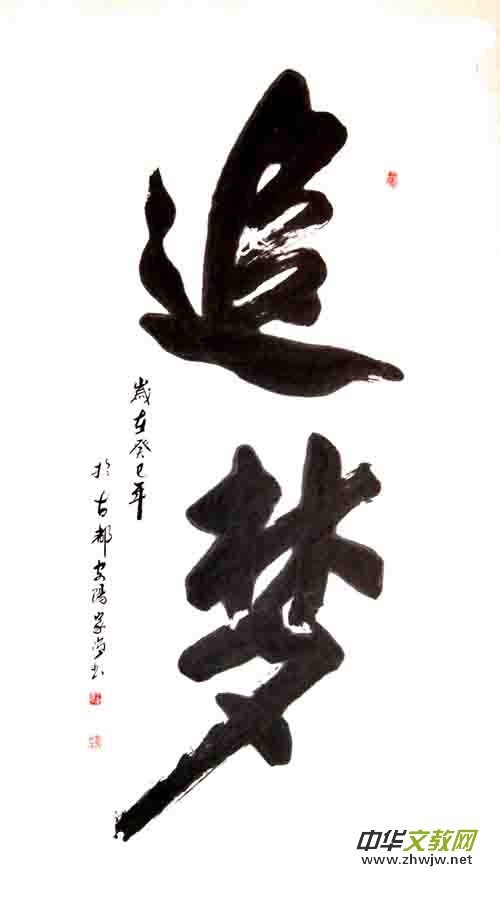 追梦
歲在癸巳年
於古都安陽家尚书
中华文教网
www.zhwjw.net